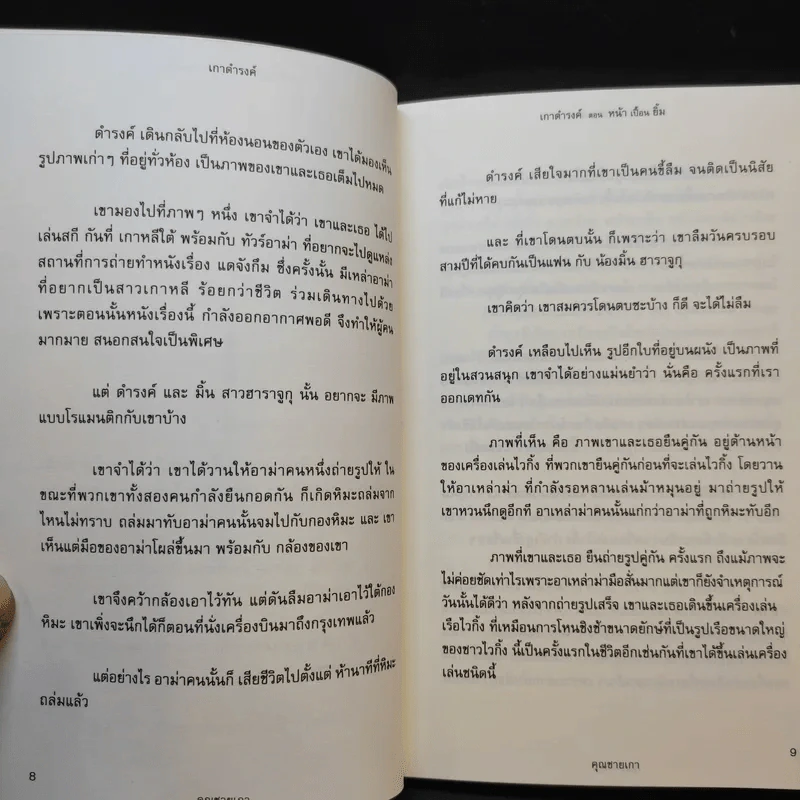 เกาดำรงค์
ดำรงค์ เดินกลับไปที่ห้องนอนของตัวเอง เขาได้มองเห็น
รูปภาพเก่าๆ ที่อยู่ทั่วห้อง เป็นภาพของเขาและเธอเต็มไปหมด
เขามองไปที่ภาพๆ หนึ่ง เขาจำได้ว่า เขาและเธอ ได้ไป
เล่นสกี กันที่ เกาหลีใต้ พร้อมกับ ทัวร์อาม่า ที่อยากจะไปดูแหล่ง
สถานที่การถ่ายทำหนังเรื่อง แดจังกึม ซึ่งครั้งนั้น มีเหล่าอาม่า
ที่อยากเป็นสาวเกาหลี ร้อยกว่าชีวิต ร่วมเดินทางไปด้วย
เพราะตอนนั้นหนังเรื่องนี้ กำลังออกอากาศพอดี จึงทำให้ผู้คน
มากมาย สนอกสนใจเป็นพิเศษ
แต่ ดำรงค์ และ มิ้น สาวฮาราจูกุ นั้น อยากจะ มีภาพ
แบบโรแมนติกกับเขาบ้าง
เขาจำได้ว่า เขาได้วานให้อาม่าคนหนึ่งถ่ายรูปให้ ใน
ขณะที่พวกเขาทั้งสองคนกำลังยืนกอดกัน ก็เกิดหิมะถล่มจาก
ไหนไม่ทราบ ถล่มมาทับอาม่าคนนั้นจมไปกับกองหิมะ และ เขา
เห็นแต่มือของอาม่าโผล่ขึ้นมา พร้อมกับ กล้องของเขา
เขาจึงคว้ากล้องเอาไว้ทัน แต่ดันลืมอาม่าเอาไว้ใต้กอง
หิมะ เขาเพิ่งจะนึกได้ก็ตอนที่นั่งเครื่องบินมาถึงกรุงเทพแล้ว
แต่อย่างไร อาม่าคนนั้นก็ เสียชีวิตไปตั้งแต่ ห้านาทีที่หิมะ
ถล่มแล้ว
8
คุณชายเกา
เกาดำรงค์ ตอน หน้า เปื้อน ยิ้ม
ดำรงค์ เสียใจมากที่เขาเป็นคนขี้ลืม จนติดเป็นนิสัย
ที่แก้ไม่หาย
และ ที่เขาโดนตบนั้น ก็เพราะว่า เขาลืมวันครบรอบ
สามปีที่ได้คบกันเป็นแฟน กับ น้องมิ้น ฮาราจูกุ
เขาคิดว่า เขาสมควรโดนตบซะบ้าง ก็ดี จะได้ไม่ลืม
ดำรงค์ เหลือบไปเห็น รูปอีกใบที่อยู่บนผนัง เป็นภาพที่
อยู่ในสวนสนุก เขาจำได้อย่างแม่นยำว่า นั่นคือ ครั้งแรกที่เรา
ออกเดทกัน
ภาพที่เห็น คือ ภาพเขาและเธอยืนคู่กัน อยู่ด้านหน้า
ของเครื่องเล่นไวกิ้ง ที่พวกเขายืนคู่กันก่อนที่จะเล่นไวกิ้ง โดยวาน
ให้อาเหล่าม่า ที่กำลังรอหลานเล่นม้าหมุนอยู่ มาถ่ายรูปให้
เขาหวนนึกดูอีกที อาเหล่าม่าคนนั้นแก่กว่าอาม่าที่ถูกหิมะทับอีก
ภาพที่เขาและเธอ ยืนถ่ายรูปคู่กัน ครั้งแรก ถึงแม้ภาพจะ
ไม่ค่อยชัดเท่าไรเพราะอาเหล่าม่ามือสั่นมากแต่เขาก็ยังจำเหตุการณ์
วันนั้นได้ดีว่า หลังจากถ่ายรูปเสร็จ เขาและเธอเดินขึ้นเครื่องเล่น
เรือไวกิ้ง ที่เหมือนการโหนชิงช้าขนาดยักษ์ที่เป็นรูปเรือขนาดใหญ่
ของชาวไวกิ้ง นี้เป็นครั้งแรกในชีวิตอีกเช่นกันที่เขาได้ขึ้นเล่นเครื่อง
เล่นชนิดนี้
9
คุณชายเกา